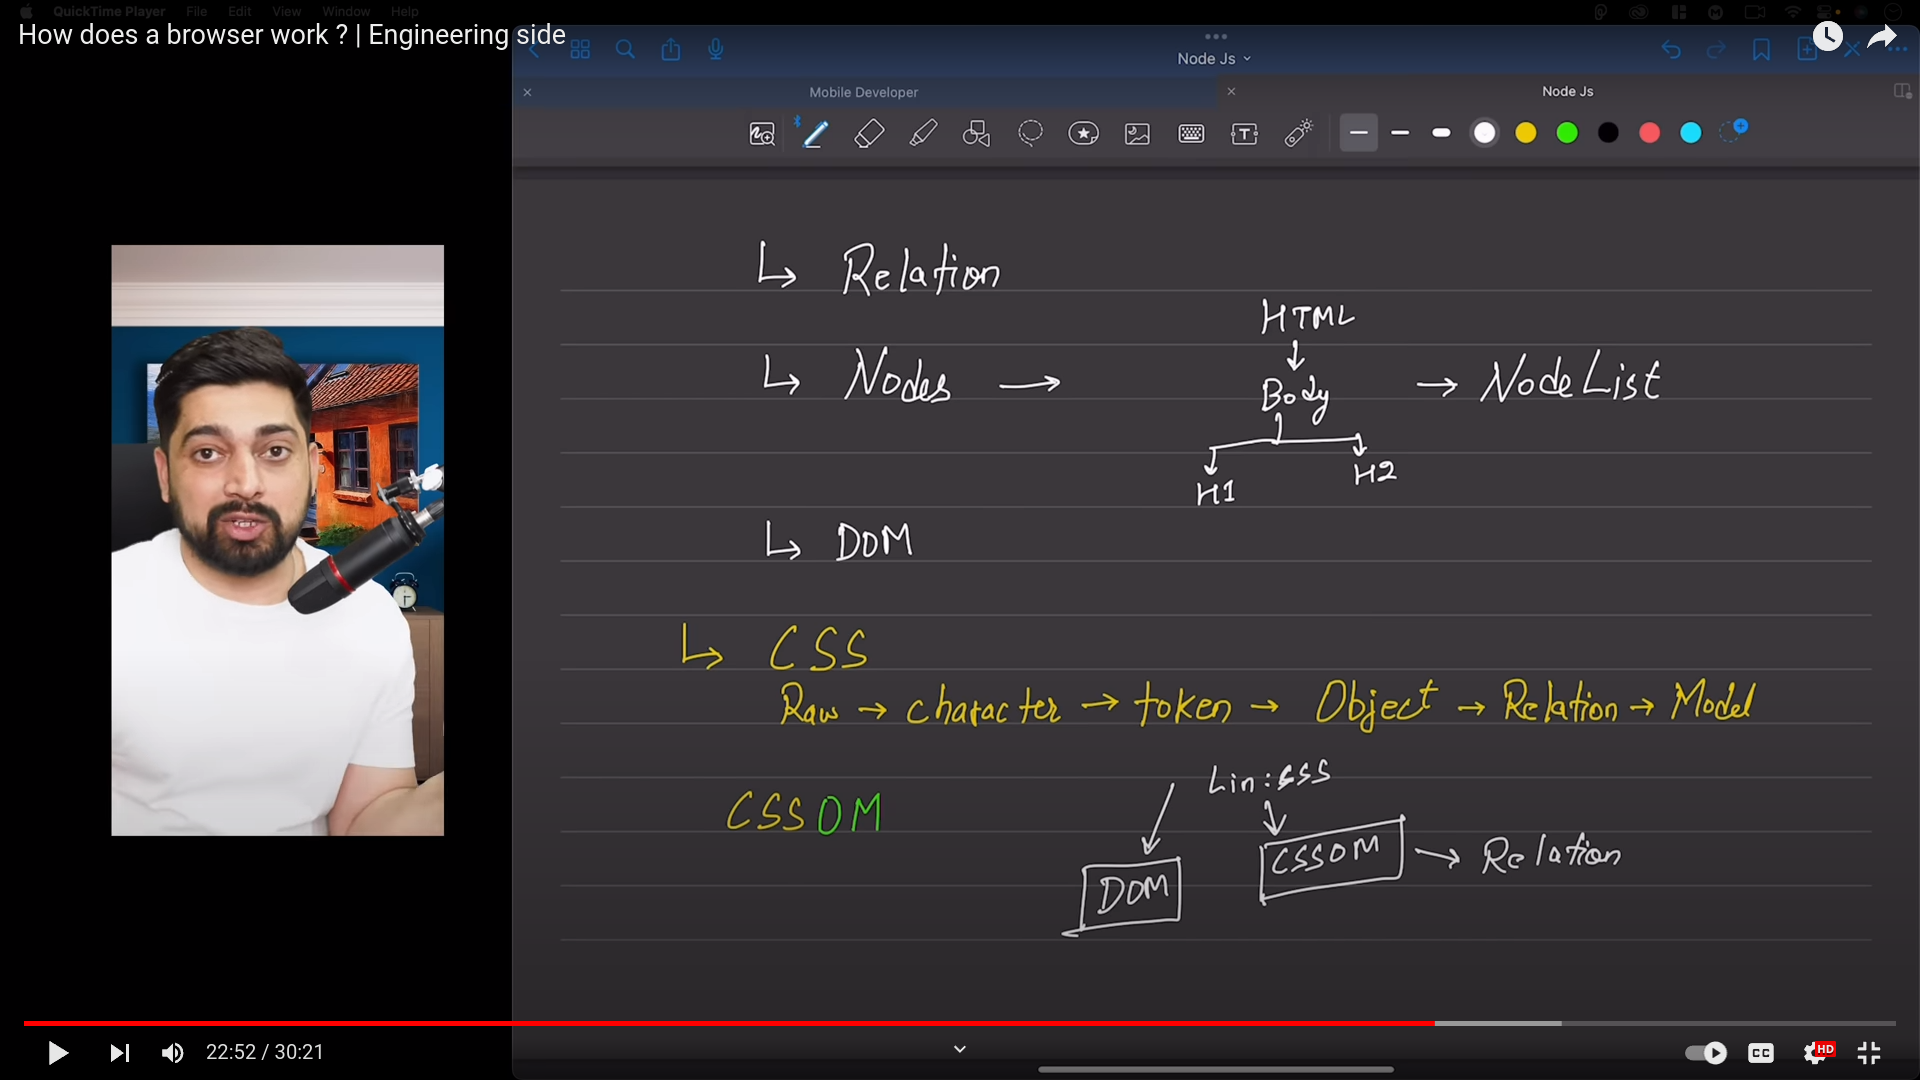 QuickTime Player File Edit View Window Help
How does a browser work ? | Engineering side
Node Js
Mobile Developer
Node Js
↳ Relation
HTML
↳ Nodes → Body → NodeList
H1 H2
↳ DOM
↳ CSS
Raw → character → token → Object → Relation → Model
Lin:css
CSSOM
CSSOM → Relation
DOM
22:52 / 30:21
CC
HD